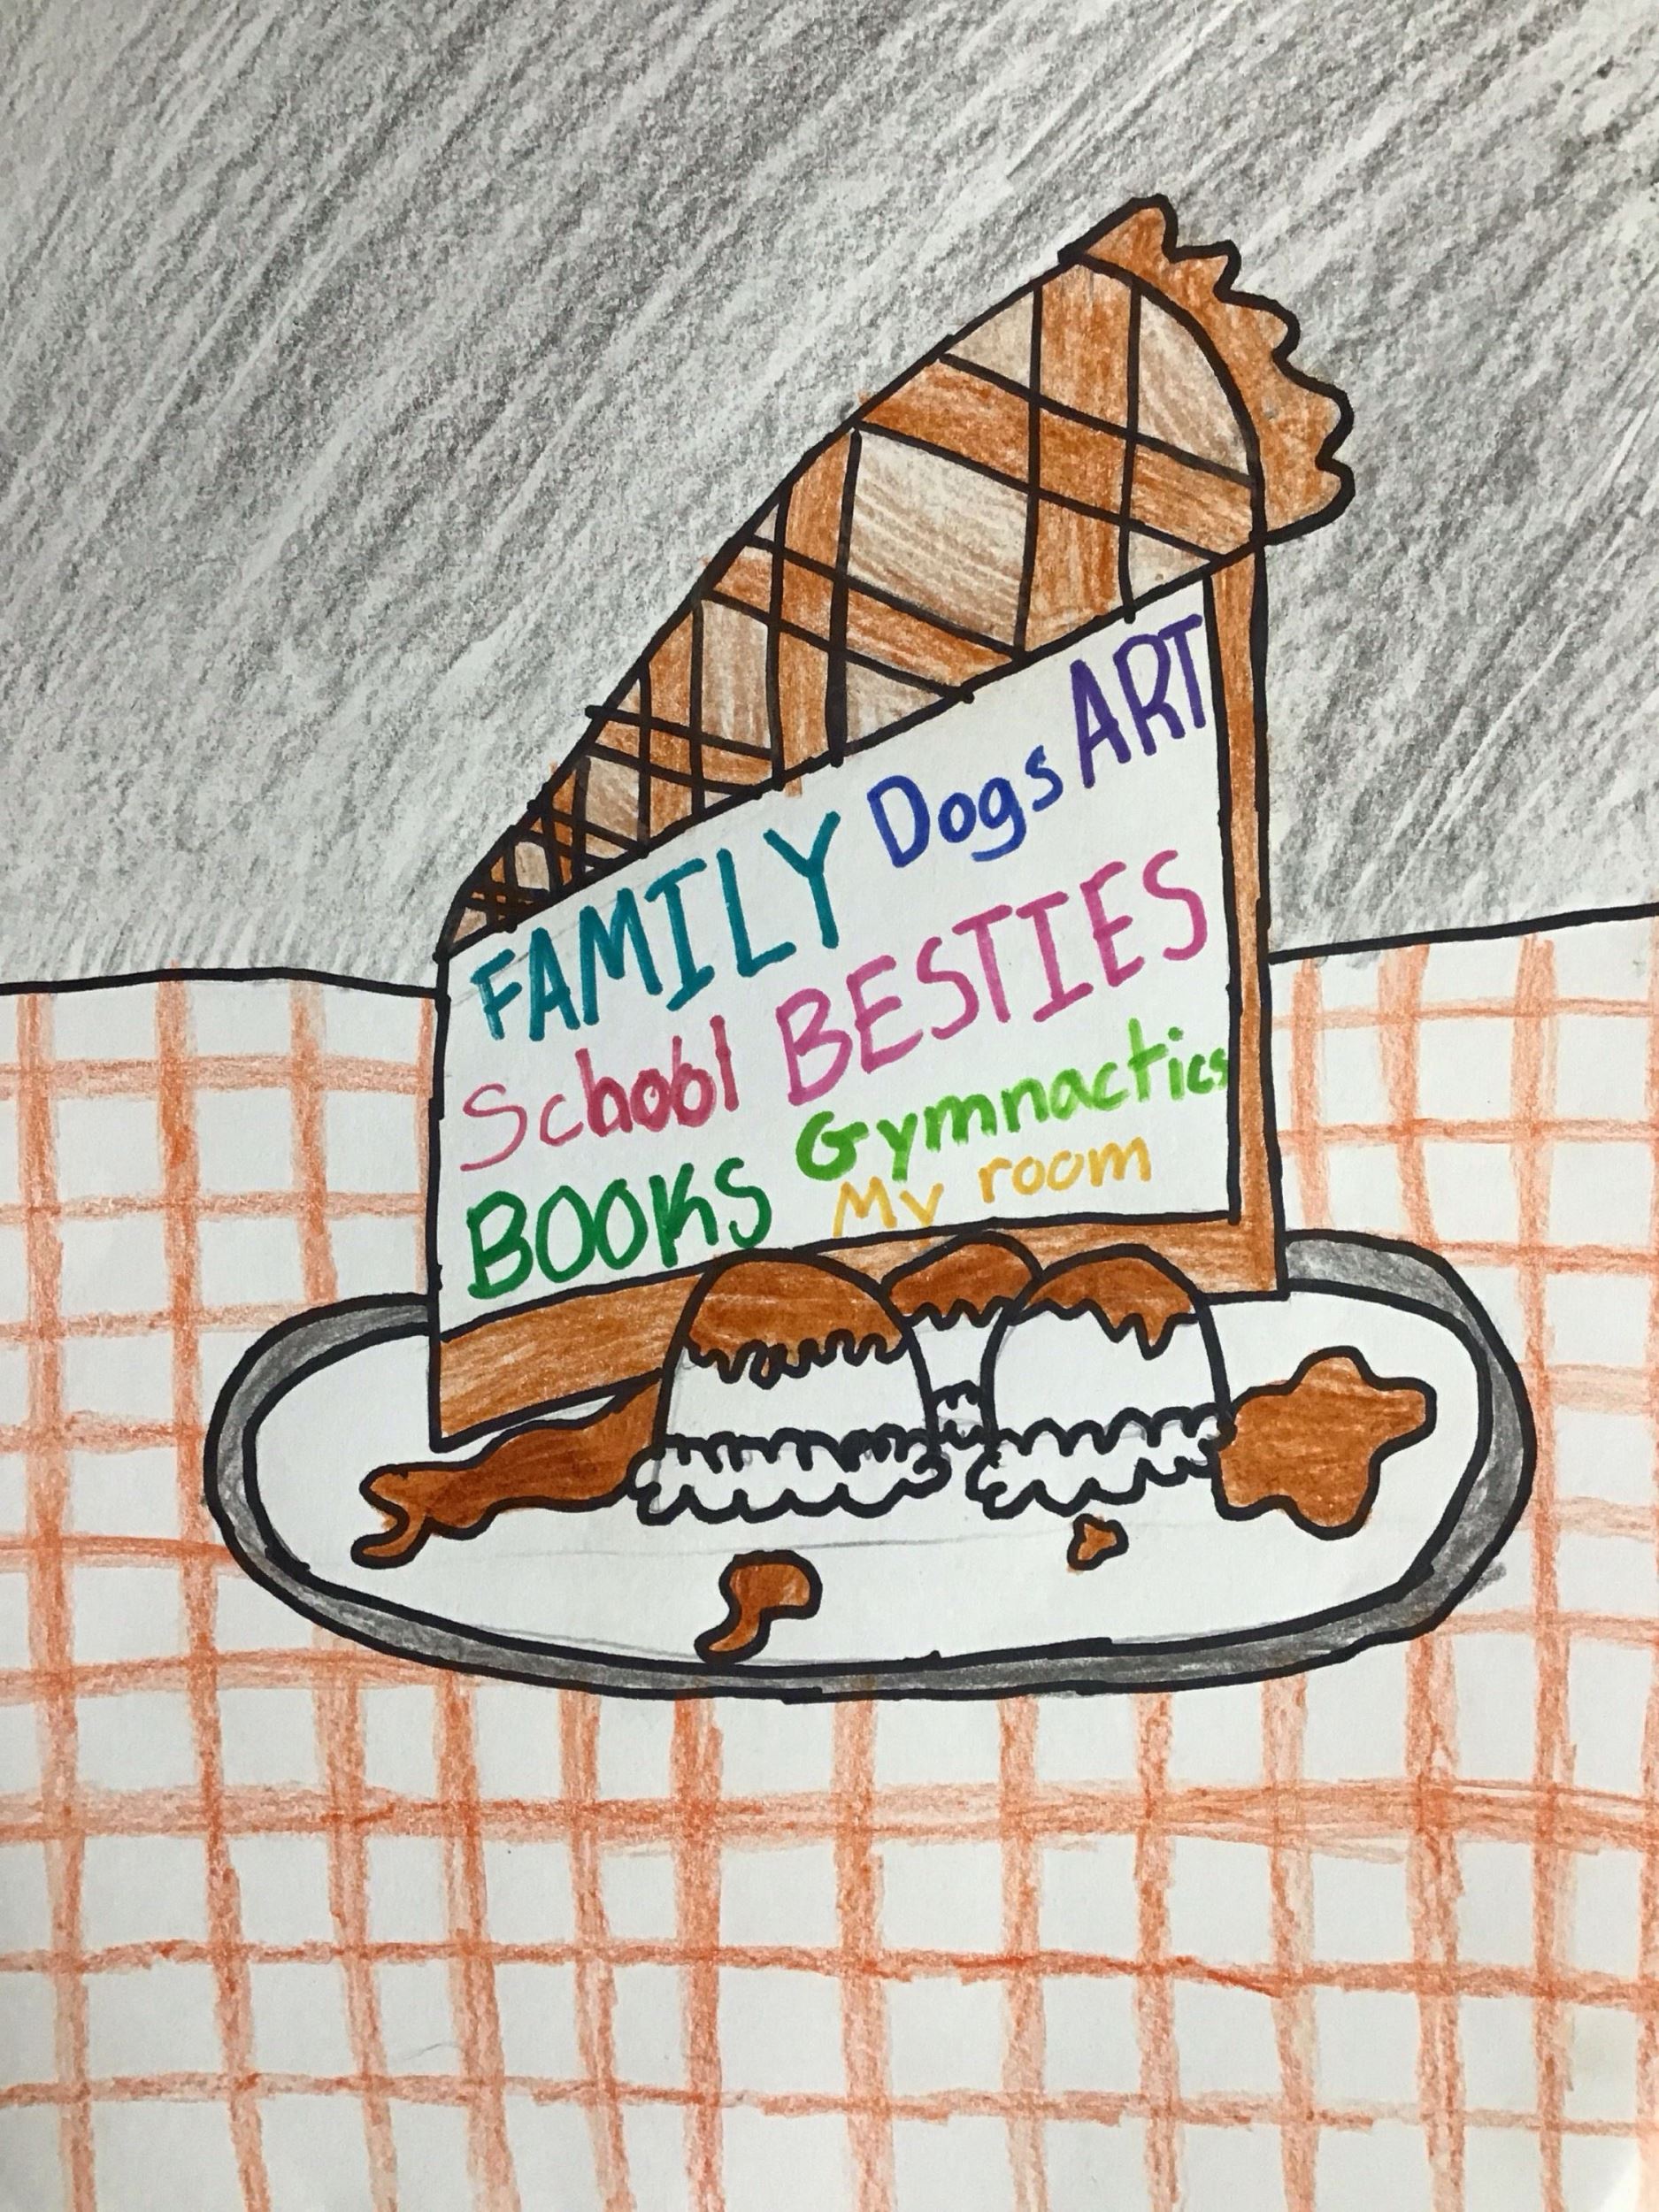 FAMILY Dogs ART
School BESTIES
BOOKS Gymnactics
My room